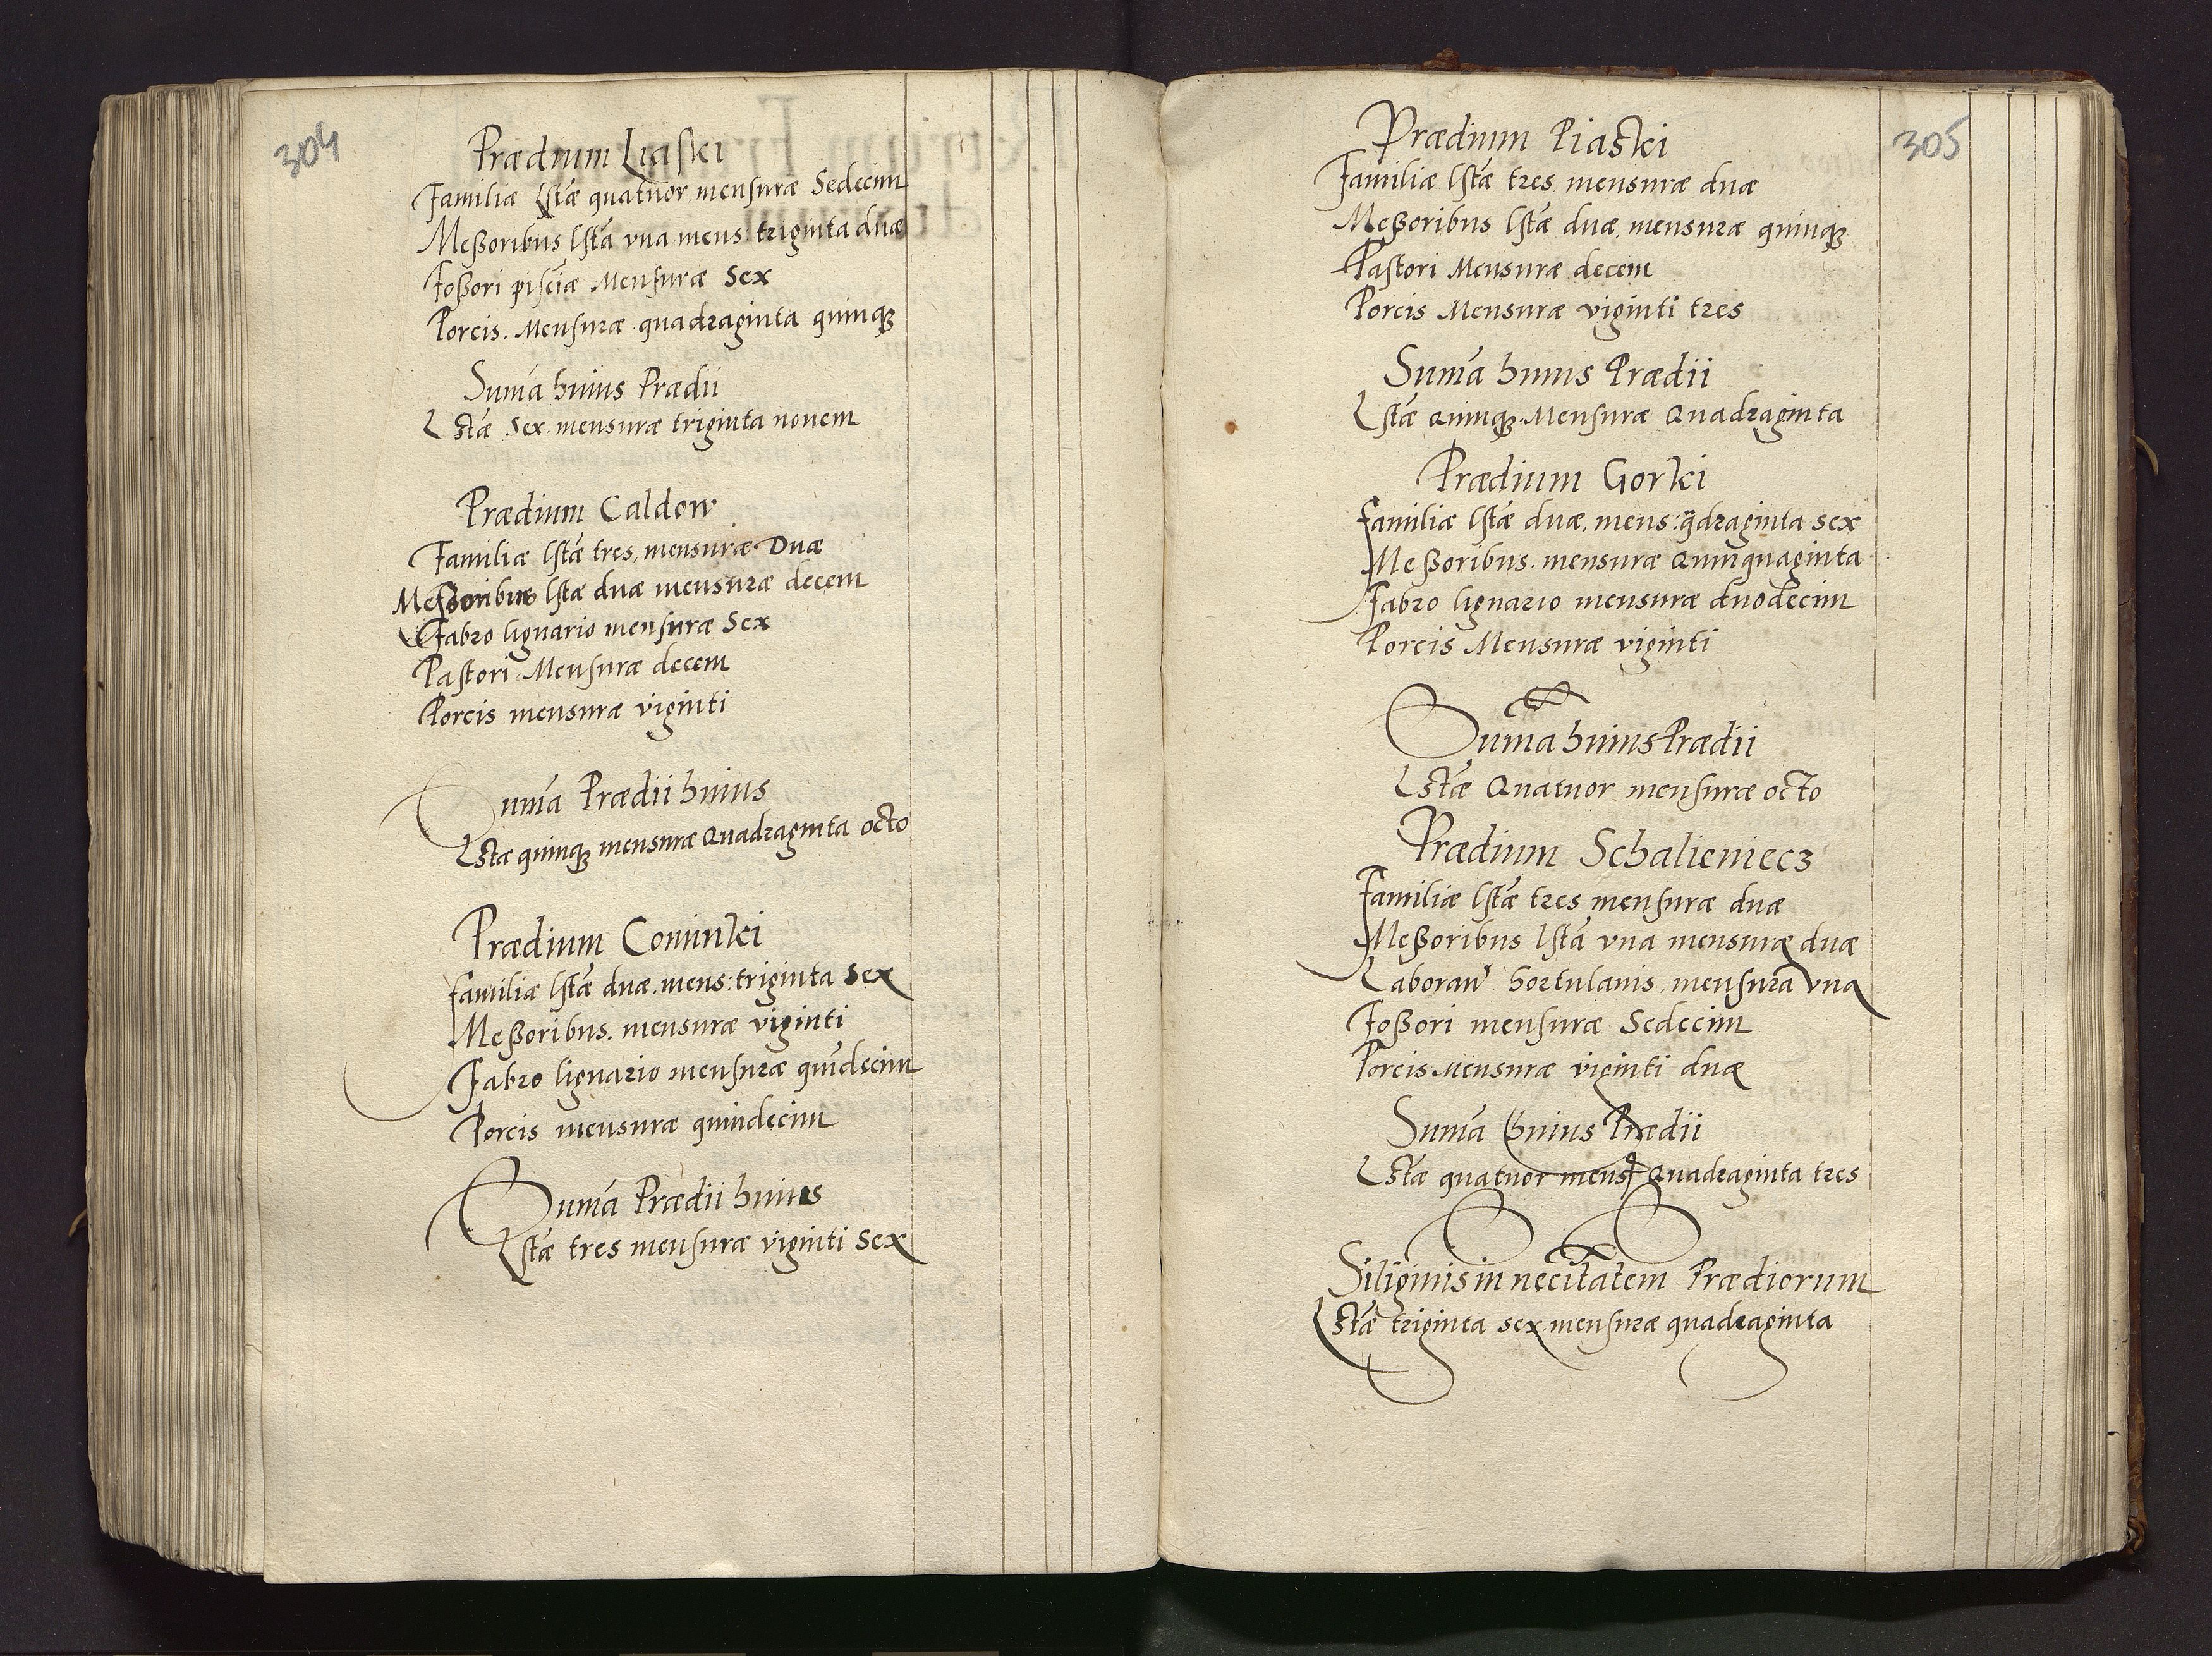 304
Prædium Liaski
Familiæ lstæ quatuor mensuræ Sedecim
Meßoribus lstā vna mens: triginta duæ
Foßori pisciæ Mensuræ Sex
Porcis. Mensuræ quadraginta quinqꝫ
Sumā huius Prædii
Lstæ Sex mensuræ triginta nouem
Prædium Caldow
Familiæ lstæ tres, mensuræ Duæ
Meßoribus lstæ duæ mensuræ decem
Fabro lignario mensuræ Sex
Pastori Mensuræ decem
Porcis mensuræ viginti
Sumā Prædii huius
Lstæ quinqꝫ mensuræ Quadraginta octo
Prædium Cominki
familiæ lstæ duæ. mens: triginta Sex
Meßoribus. mensuræ viginti
Fabro lignario mensuræ quīdecim
Porcis mensuræ quindecim
Sumā Prædii huius
Lstæ tres mensuræ viginti Sex
305
Prædium Piaski
Familiæ lstæ tres mensuræ duæ
Meßoribus lstæ duæ, mensuræ quinqꝫ
Pastori Mensuræ decem
Porcis Mensuræ viginti tres
Sumā huius Prædii
Lstæ Quinqꝫ Mensuræ Quadraginta
Prædium Gorki
familiæ lstæ duæ, mens: q̄draginta sex
Meßoribus. mensuræ Quinquaginta
Fabro lignario mensuræ duodecim
Porcis Mensuræ viginti
Suma huius Prædii
Lstæ Quatuor mensuræ octo
Prædium Schalieniecz
Familiæ lstæ tres mensuræ duæ
Meßoribus lstā vna mensuræ duæ
Laboran̄ hortulanis mensura vna
Foßori mensuræ Sedecim
Porcis Mensuræ viginti duæ
Sumā huius Prædii
Lstæ quatuor mens: Quadraginta tres
Siliginis in necītatem Prædiorum
Lstæ triginta sex mensuræ quadraginta